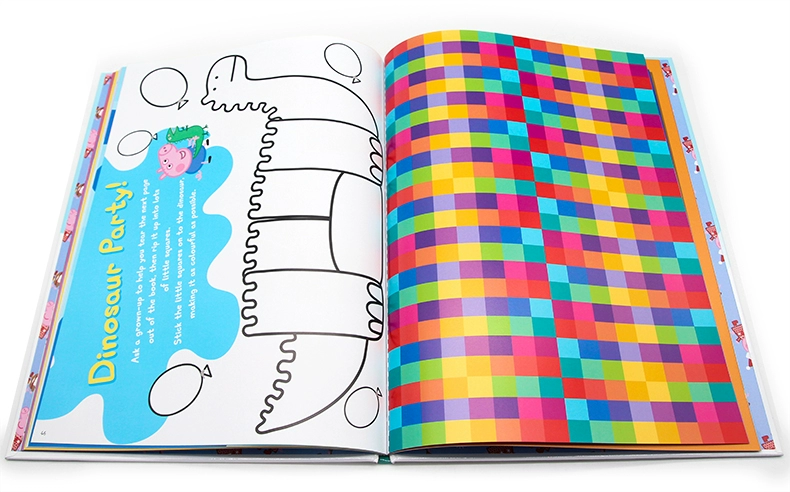 Dinosaur Party!
Ask a grown-up to help you tear the next page
out of the book, then rip it up into lots
of little squares.
Stick the little squares on to the dinosaur
making it as colourful as possible.
44